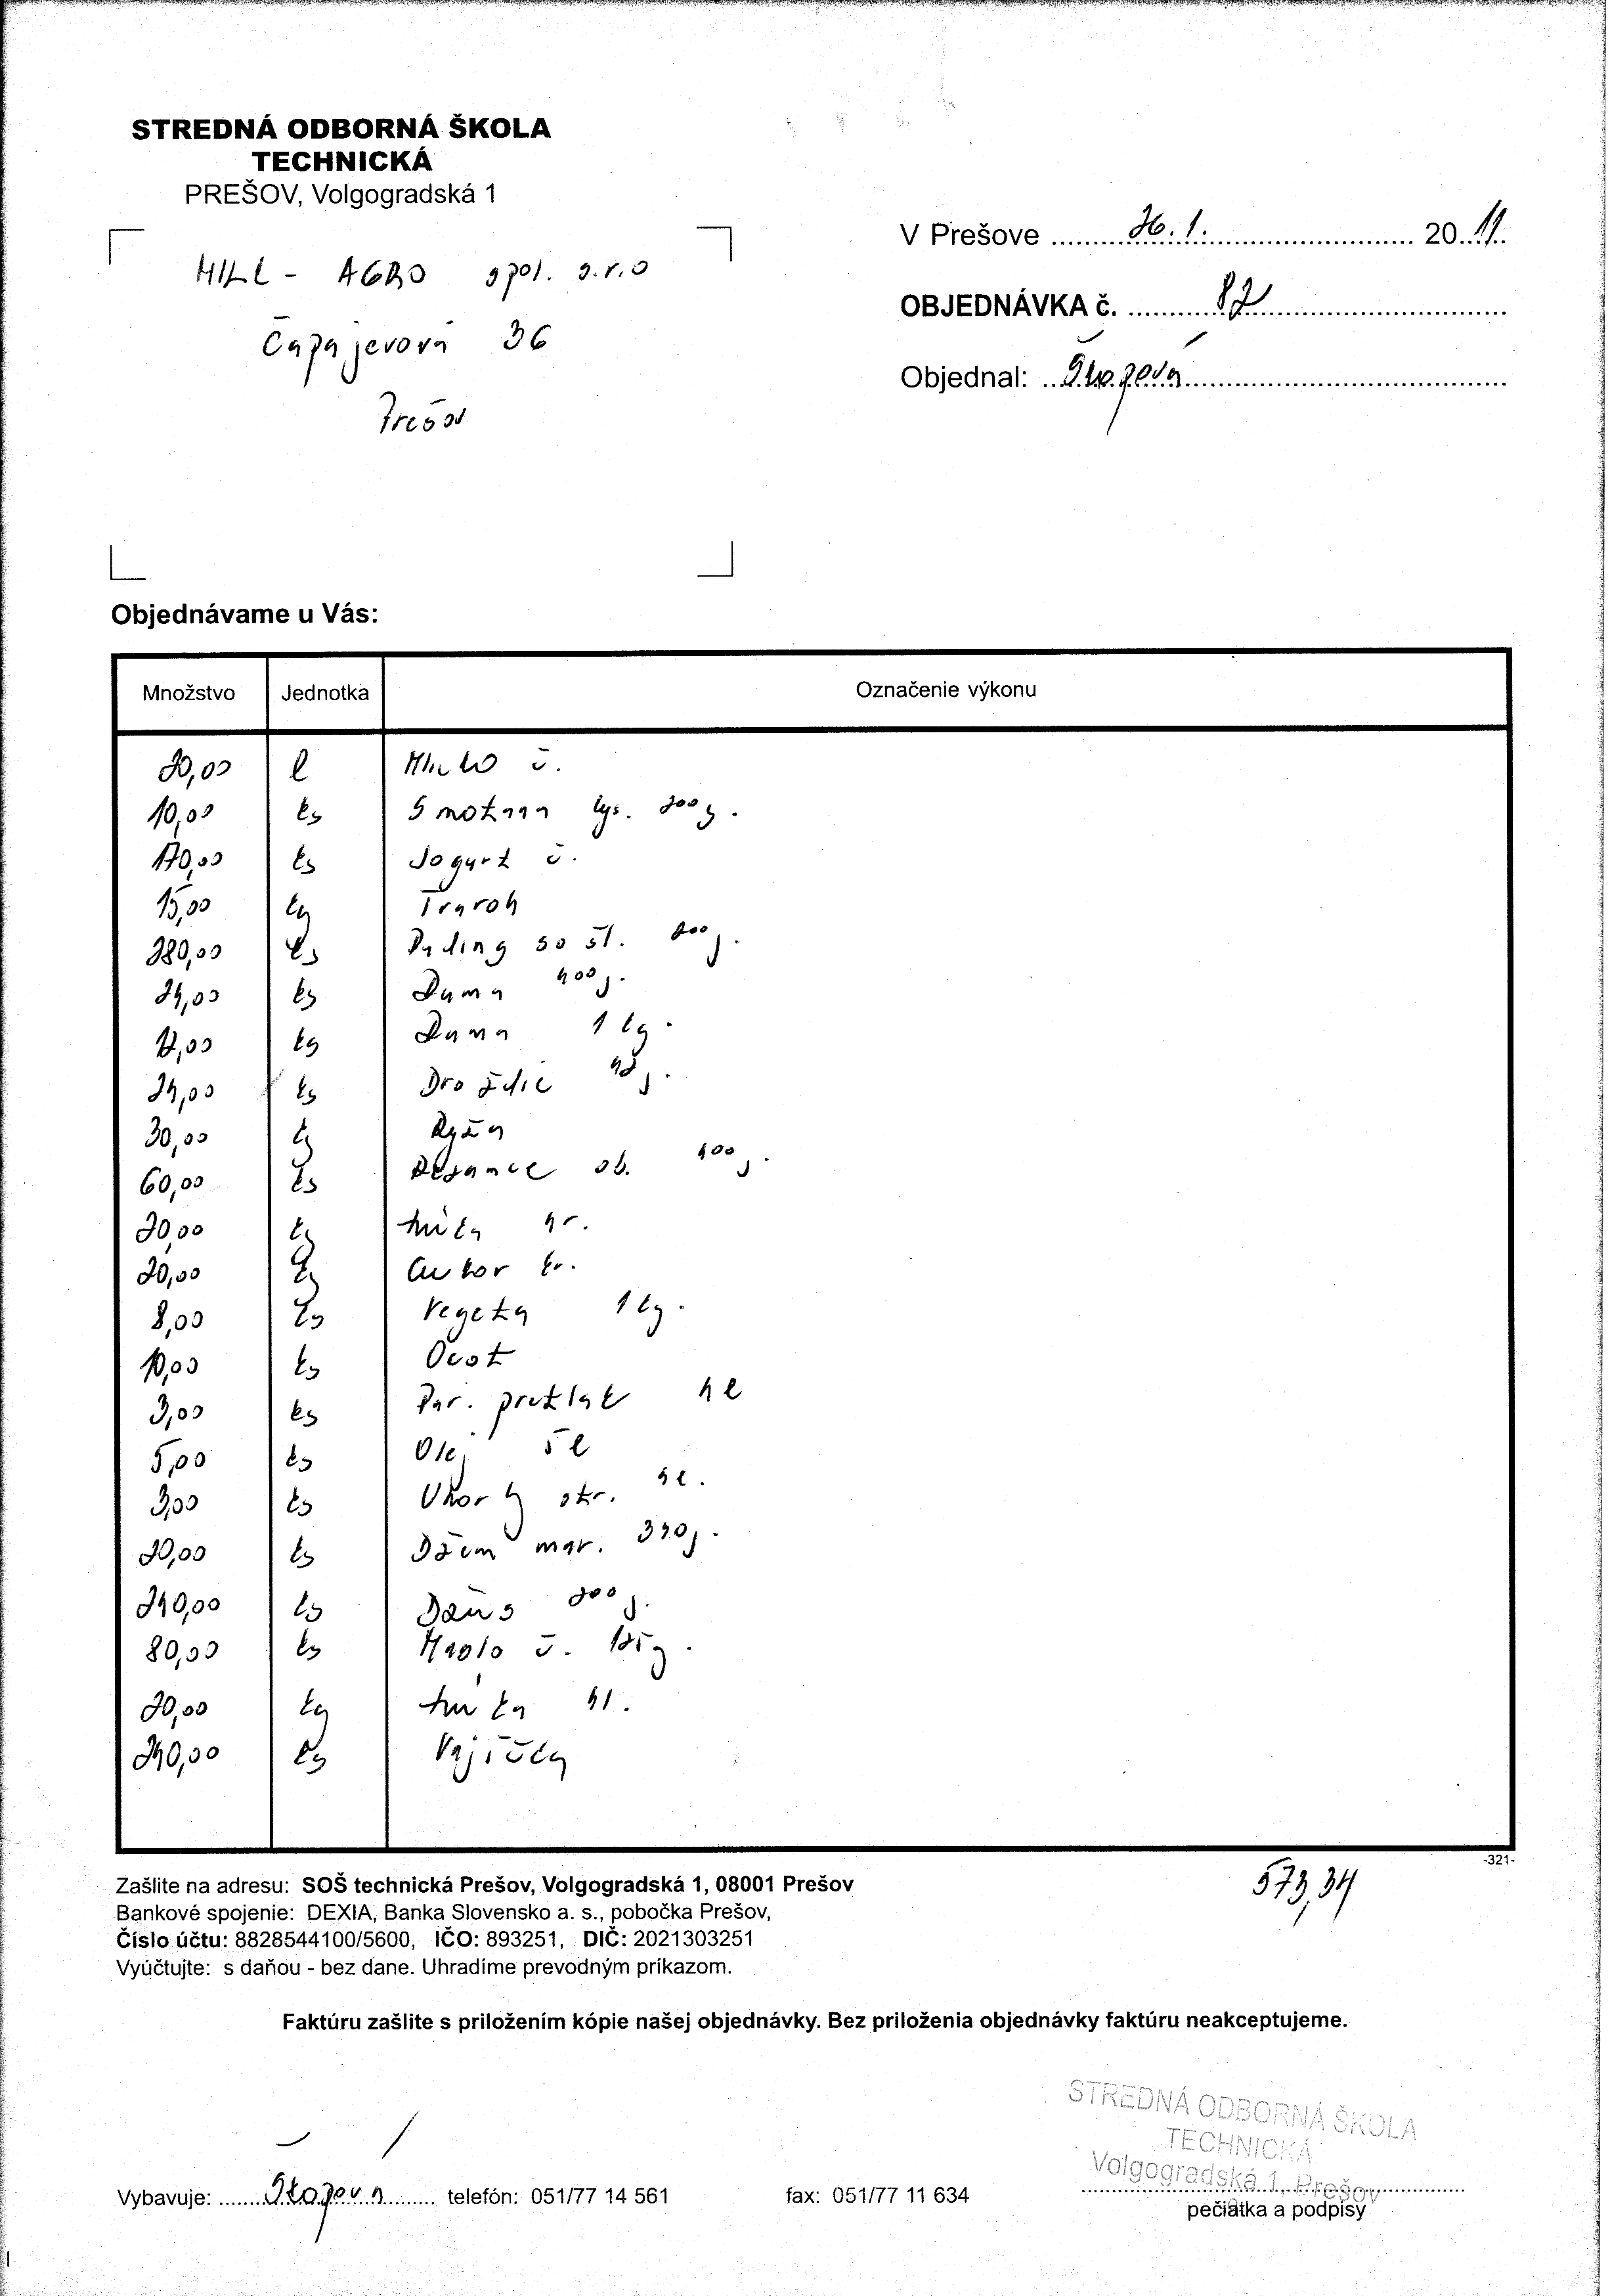 STREDNÁ ODBORNÁ ŠKOLA
TECHNICKÁ
PREŠOV, Volgogradská 1
V Prešove 26. 1. 2011
MILK - AGRO spol. s.r.o
OBJEDNÁVKA č. 82
Čapajevová 36
Objednal:
Prešov
Objednávame u Vás:
Množstvo Jednotka Označenie výkonu
20,00 l Mlieko č.
10,00 ks Smotana kys. 200g.
170,00 ks Jogurt č.
15,00 kg Tvaroh
280,00 ks Puding so šl. 200g.
24,00 ks Duma 400g.
12,00 kg Duma 1 kg.
24,00 ks Droždie 42g.
30,00 kg Ryža
60,00 ks Rezance ob. 400g.
20,00 kg Múka hr.
20,00 kg Cukor kr.
8,00 ks Vegeta 1 kg.
10,00 ks Ocot
3,00 ks Par. pretlak 4 l
5,00 ks Olej 5 l
3,00 ks Uhorky 4 l.
20,00 ks Džem mar. 320g.
240,00 ks Džús 200g.
80,00 ks Maslo č. 125g.
20,00 kg Múka hl.
240,00 ks Vajíčka
-321-
573,34
Zašlite na adresu: SOŠ technická Prešov, Volgogradská 1, 08001 Prešov
Bankové spojenie: DEXIA, Banka Slovensko a. s., pobočka Prešov,
Číslo účtu: 8828544100/5600, IČO: 893251, DIČ: 2021303251
Vyúčtujte: s daňou - bez dane. Uhradíme prevodným príkazom.
Faktúru zašlite s priložením kópie našej objednávky. Bez priloženia objednávky faktúru neakceptujeme.
STREDNÁ ODBORNÁ ŠKOLA
TECHNICKÁ
Volgogradská 1, Prešov
Vybavuje: telefón: 051/77 14 561 fax: 051/77 11 634
pečiatka a podpisy